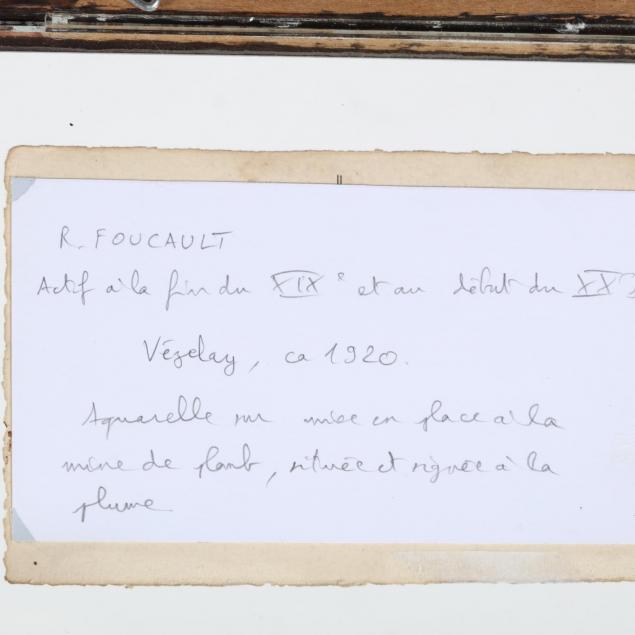 R. FOUCAULT
Actif à la fin du XIXe et au début du XXe
Vézelay, ca 1920.
Aquarelle sur mise en place à la
mine de plomb, située et signée à la
plume